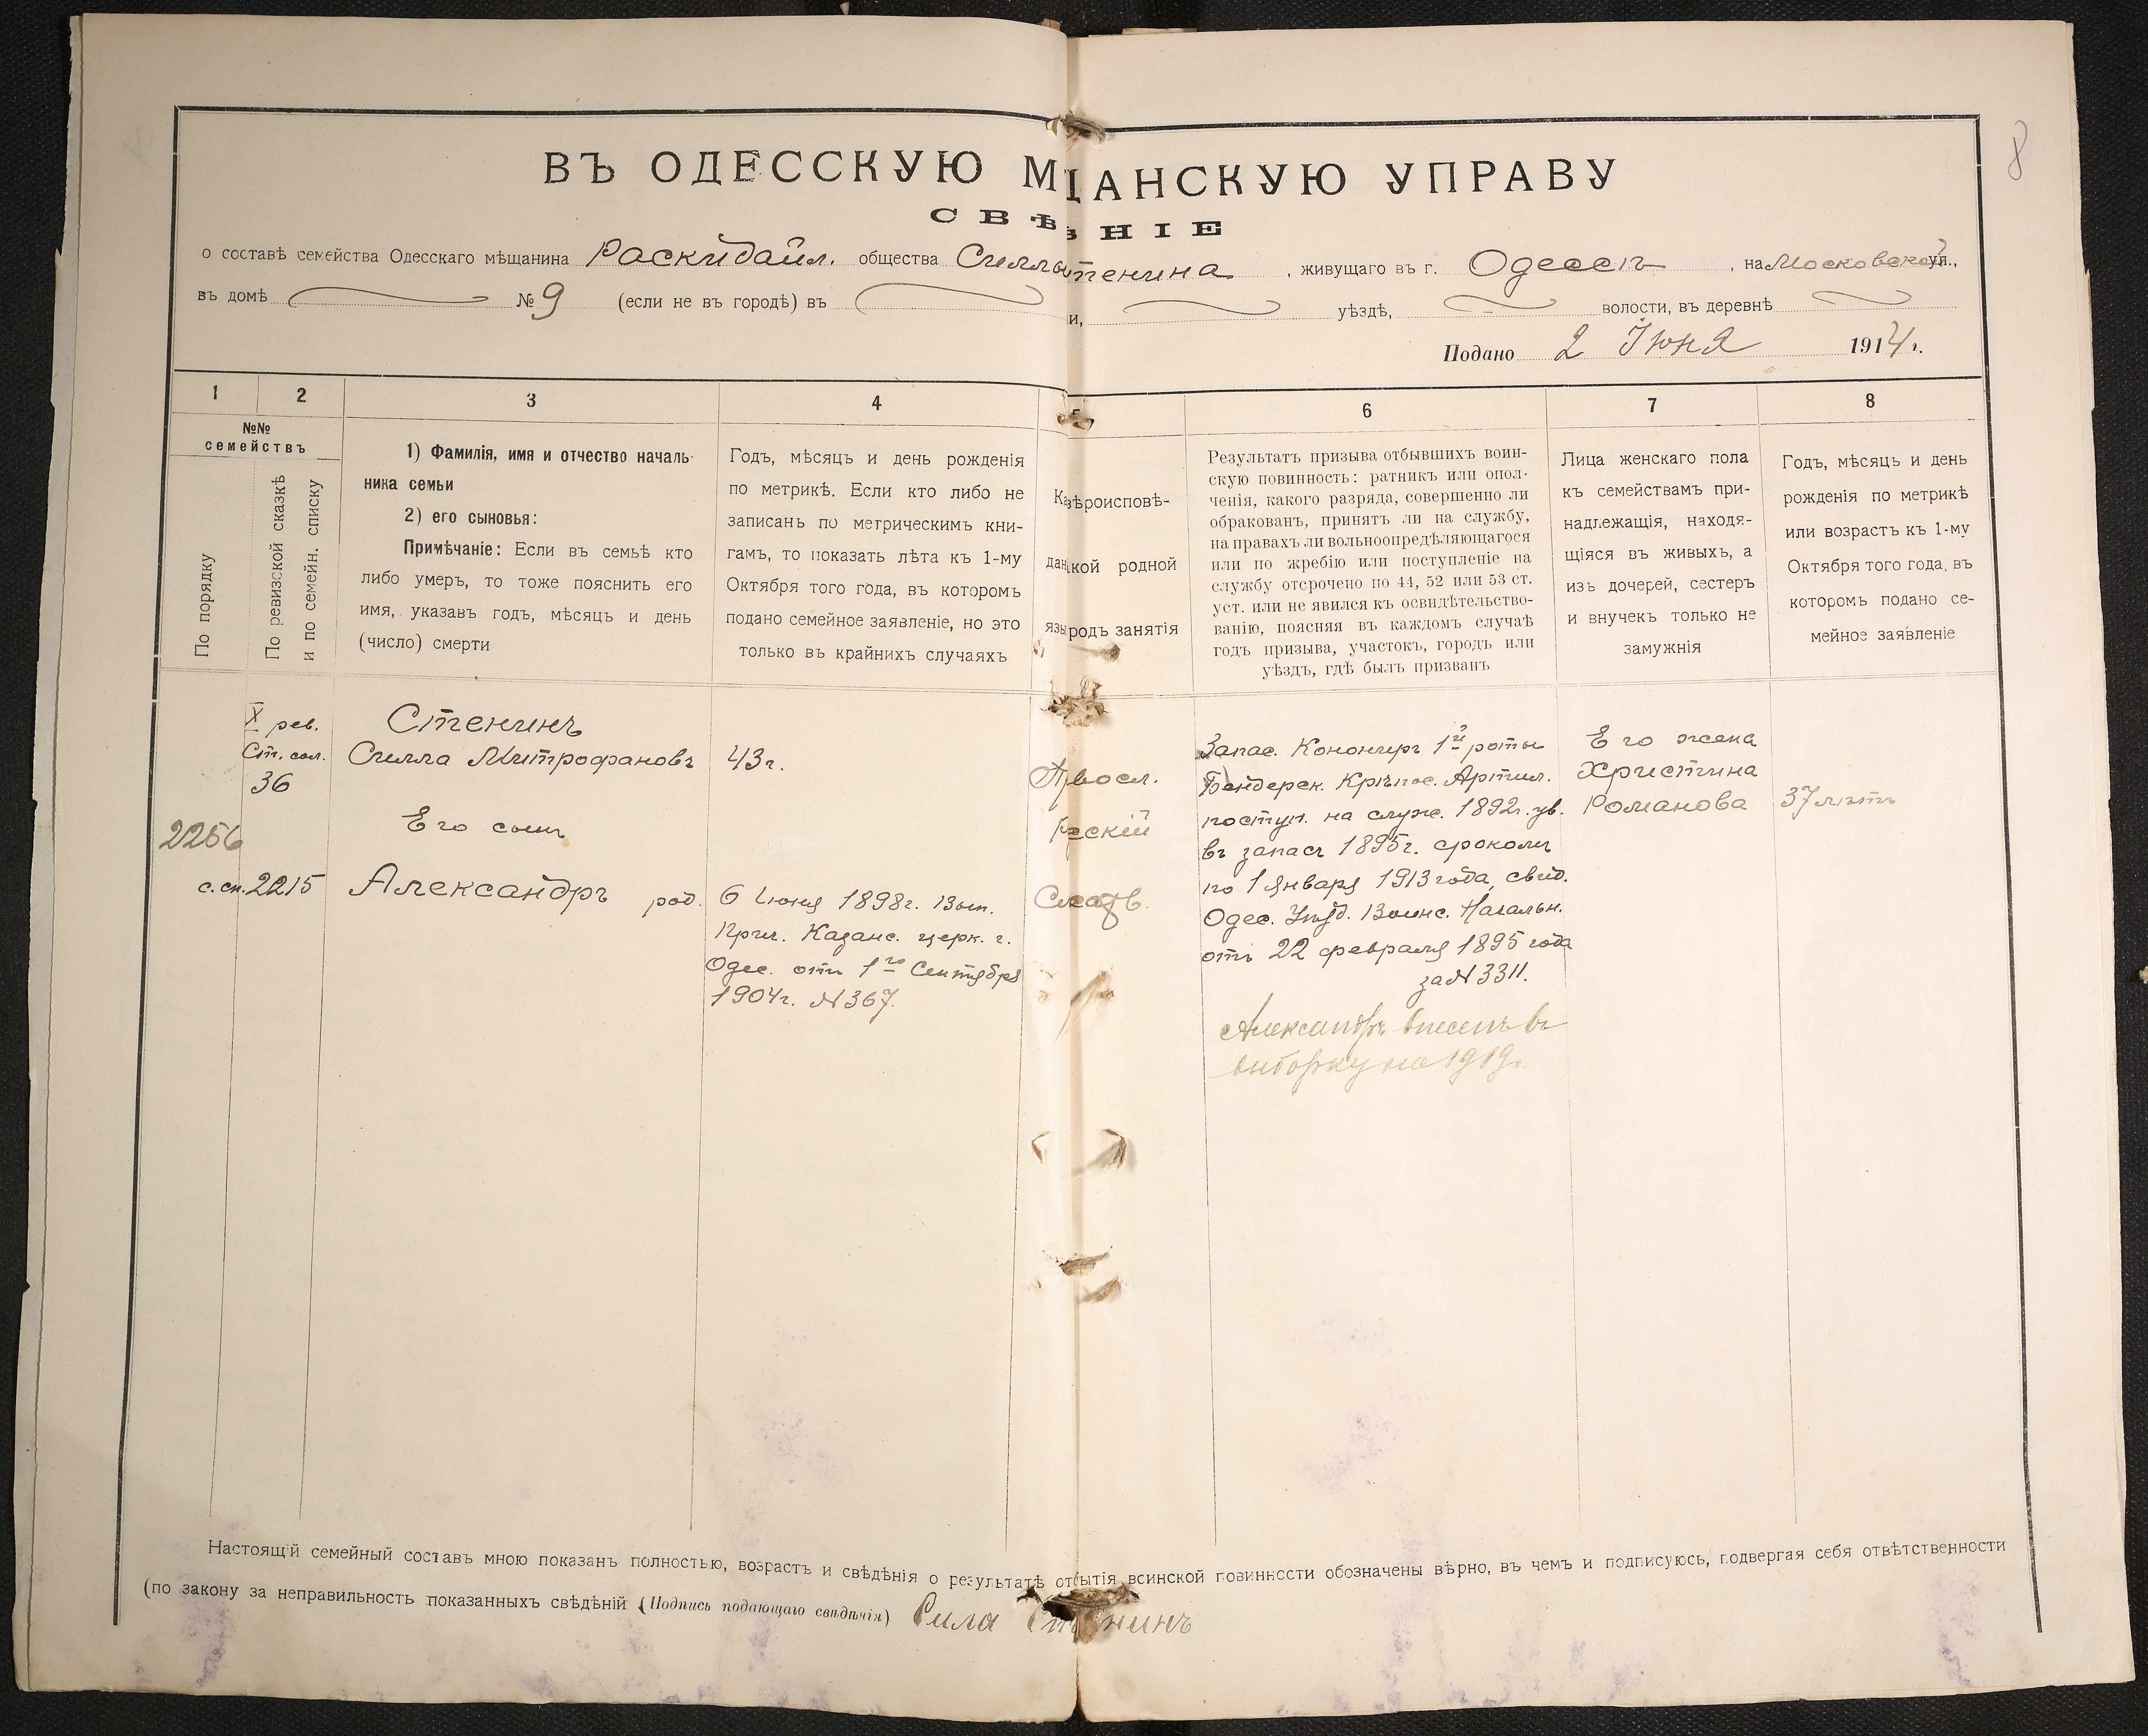 8
ВЪ ОДЕССКУЮ М ЩАНСКУЮ УПРАВУ
СВѢ НІЕ
о составѣ семейства Одесскаго мѣщанина Раскидайл. общества Силлы Стенина, живущаго въ г. Одессѣ, на Московской ул.,
въ домѣ № 9 (если не въ городѣ) въ и, уѣздѣ, волости, въ деревнѣ
Подано 2 Іюня 1914 г.
1 2 3 4 5 6 7 8
№№ семействъ
По порядку
По ревизской сказкѣ и по семейн. списку
1) Фамилія, имя и отчество началь-
ника семьи
2) его сыновья:
Примѣчаніе: Если въ семьѣ кто
либо умеръ, то тоже пояснить его
имя, указавъ годъ, мѣсяцъ и день
(число) смерти
Годъ, мѣсяцъ и день рожденія
по метрикѣ. Если кто либо не
записанъ по метрическимъ кни-
гамъ, то показать лѣта къ 1-му
Октября того года, въ которомъ
подано семейное заявленіе, но это
только въ крайнихъ случаяхъ
Ка вѣроисповѣ-
дан кой родной
язы родъ занятія
Результатъ призыва отбывшихъ воин-
скую повинность: ратникъ или опол-
ченія, какого разряда, совершенно ли
обракованъ, принятъ ли на службу,
на правахъ ли вольноопредѣляющагося
или по жребію или поступленіе на
службу отсрочено по 44, 52 или 53 ст.
уст. или не явился къ освидѣтельство-
ванію, поясняя въ каждомъ случаѣ
годъ призыва, участокъ, городъ или
уѣздъ, гдѣ былъ призванъ
Лица женскаго пола
къ семействамъ при-
надлежащія, находя-
щіяся въ живыхъ, а
изъ дочерей, сестеръ
и внучекъ только не
замужнія
Годъ, мѣсяцъ и день
рожденія по метрикѣ
или возрастъ къ 1-му
Октября того года, въ
которомъ подано се-
мейное заявленіе
X рев.
Ст. сол.
36
2256
с. сп. 2215
Стенинъ
Силла Митрофановъ
Его сынъ
Александръ род.
43 г.
6 Іюня 1898 г. Вып.
Прич. Казанс. церк. г.
Одес. отъ 1го Сентября
1904 г. № 367.
Правосл.
Русскій
Запас. Канониръ 1й роты
Бендерск. Крѣпос. Артил.
поступ. на служ. 1892 г. ув.
въ запасъ 1895 г. срокомъ
по 1 Января 1913 года, свид.
Одес. Уѣзд. Воинс. Начальн.
отъ 22 февраля 1895 года
за № 3311.
Александръ внесенъ въ
выборку на 1919 г.
Его жена
Христина
Романова
37 лѣтъ
Настоящій семейный составъ мною показанъ полностью, возрастъ и свѣдѣнія о результатѣ отбытія воинской повинности обозначены вѣрно, въ чемъ и подписуюсь, подвергая себя отвѣтственности
(по закону за неправильность показанныхъ свѣдѣній (Подпись подающаго свѣдѣнія) Сила Стенинъ